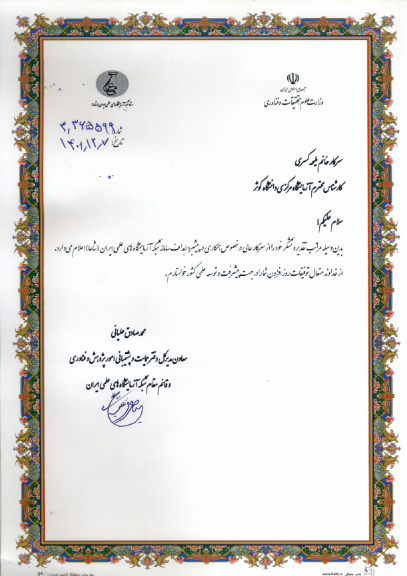 جمهوری اسلامی ایران
وزارت علوم تحقیقات و فناوری
شماره
۳,۳۶۵۵۹۹
تاریخ:
۱۴۰۱,۱۲,۷
سرکار خانم ملیحه کسری
کارشناس محترم آزمایشگاه مرکزی دانشگاه کوثر
سلام علیکم؛
بدین وسیله مراتب تقدیر و تشکر خود را از سرکار عالی در خصوص همکاری در پیشبرد اهداف سامانه شبکه آزمایشگاه های علمی ایران (شاعا) اعلام می دارد.
از خداوند متعال توفیقات روز افزون شما را در جهت پیشرفت و توسعه علمی کشور خواستارم.
محمد صادق علیائی
معاون مدیر کل دفتر حمایت و پشتیبانی امور پژوهش و فناوری
و قائم مقام شبکه آزمایشگاه های علمی ایران